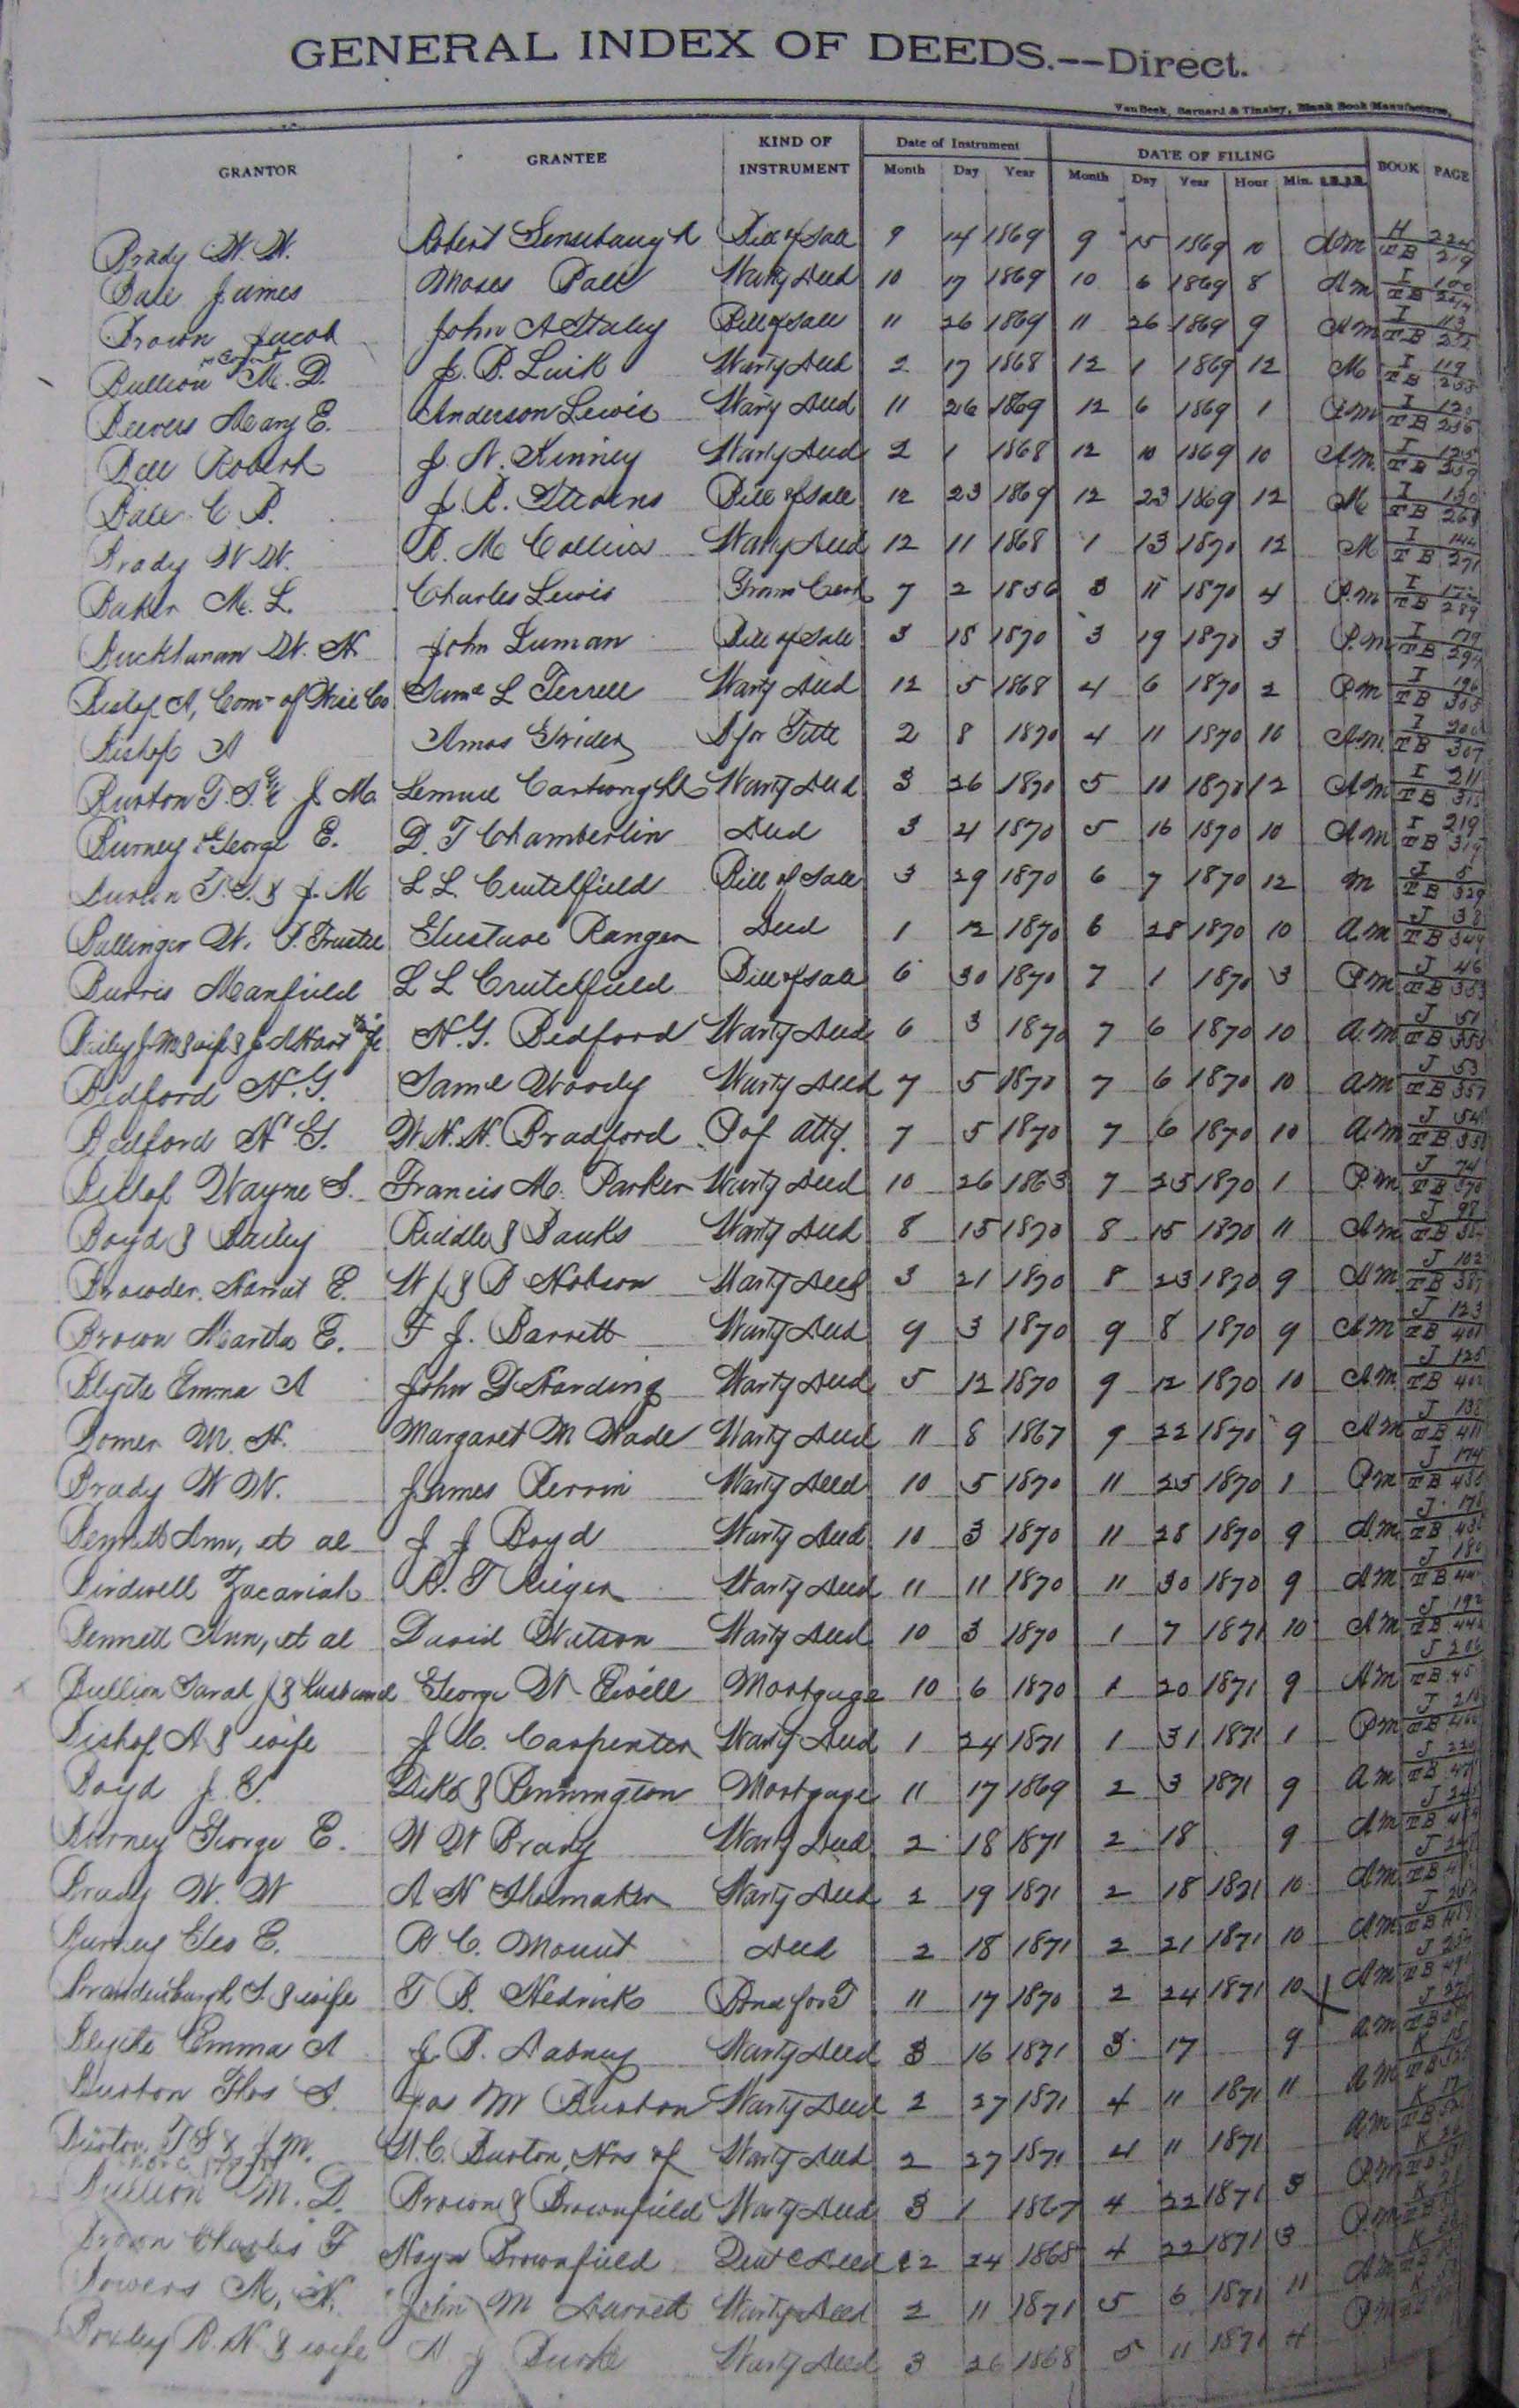 GENERAL INDEX OF DEEDS.--Direct.
Van Beek, Barnard & Tinsley, Blank Book Manufacturers,
GRANTOR GRANTEE KIND OF INSTRUMENT Date of Instrument DATE OF FILING BOOK PAGE
Month Day Year Month Day Year Hour Min.
Brady W. W. Robert Sensebaugh Bill of Sale 9 14 1869 9 15 1869 10 AM H TB 219
Ball James Moses Ball Warty Deed 10 17 1869 10 6 1869 8 AM I 100 TB
Brown Jacob John A Staley Bill of Sale 11 26 1869 11 26 1869 9 AM I 113 TB
Bullion M. D. J. B. Luik Warty Deed 2 17 1868 12 1 1869 12 M I 119 TB 255
Beevers Mary E. Anderson Lewis Warty Deed 11 26 1869 12 6 1869 1 P.M I 120 TB 256
Bell Robert J. N. Kinney Warty Deed 2 1 1868 12 10 1869 10 AM. I 125 TB 259
Ball C. P. J. R. Stevens Bill of Sale 12 23 1869 12 23 1869 12 M I 130 TB
Brady W W. R. M Collins Warty Deed 12 11 1868 1 13 1870 12 M I 144 TB 271
Baker M. L. Charles Lewis 7 2 1856 3 11 1870 4 P.M I 172 TB 289
Buckhanan W. H John Luman Bill of Sale 3 18 1870 3 19 1870 3 P.M I 179 TB 294
Bishop A, Comr of Wise Co Saml L Terrell Warty Deed 12 5 1868 4 6 1870 2 P.M I 196 TB 305
Bishop A Amos Grider B for Title 2 8 1870 4 11 1870 10 A.M. I 200 TB 307
Burton T. S. & J M. Lemuel Cartwright Warty Deed 3 26 1870 5 10 1870 12 AM I 211 TB 315
Burney George E. D. T Chamberlin Deed 3 4 1870 5 16 1870 10 AM I 219 TB 319
Burton T. S. & J. M L L. Crutchfield Bill of Sale 3 29 1870 6 7 1870 12 M J 5 TB 329
Ballinger W. P. Trustee Gustave Ranger Deed 1 12 1870 6 28 1870 10 A.M J 38 TB 349
Burris Manfield L L Crutchfield Bill of Sale 6 30 1870 7 1 1870 3 P.M J 46 TB 353
Bailey J. M & wife & J. A Hart & wife N. G. Bedford Warty Deed 6 3 1870 7 6 1870 10 A.M J 51 TB 355
Bedford N. G. Saml Woody Warty Deed 7 5 1870 7 6 1870 10 AM J 53 TB 357
Bedford N G. W. N. N. Bradford P of Atty. 7 5 1870 7 6 1870 10 A.M J 54 TB 358
Bishop Wayne S. Francis M. Parker Warty Deed 10 26 1863 7 25 1870 1 P.M J 74 TB 370
Boyd & Bailey Riddle & Banks Warty Deed 8 15 1870 8 15 1870 11 AM J 98 TB
Browder Harriet E. W J & B Hobson Warty Deed 3 21 1870 8 23 1870 9 AM J 102 TB 387
Brown Martha E. F J. Barrett Warty Deed 9 3 1870 9 8 1870 9 AM J 123 TB 401
Blythe Emma A John D Harding Warty Deed 5 12 1870 9 12 1870 10 AM. J 125 TB 402
Bomer M. H. Margaret M Wade Warty Deed 11 8 1867 9 22 1870 9 AM J 138 TB 411
Brady W W. James Perrin Warty Deed 10 5 1870 11 25 1870 1 P.M J 174 TB
Bennett Ann, et al J J Boyd Warty Deed 10 3 1870 11 28 1870 9 A.M J TB
Birdwell Zacariah R. T Rieger Warty Deed 11 11 1870 11 30 1870 9 AM J TB
Bennett Ann, et al David Watson Warty Deed 10 3 1870 1 7 1871 10 AM J 192 TB
Bullion Sarah J & Husband George W Ewell Mortgage 10 6 1870 1 20 1871 9 AM J TB
Bishop A & wife J. C. Carpenter Warty Deed 1 24 1871 1 31 1871 1 PM J TB
Boyd J. S. Dike & Pennington Mortgage 11 17 1869 2 3 1871 9 AM J TB
Burney George E. W W Brady Warty Deed 2 18 1871 2 18 9 AM J TB
Brady W. W A N Shoemaker Warty Deed 2 19 1871 2 18 1871 10 AM J TB
Burney Geo E. R. C. Mount Deed 2 18 1871 2 21 1871 10 AM J TB
Brandenburgh S. & wife T B. Hedrick Bond for T 11 17 1870 2 24 1871 10 AM J TB
Blythe Emma A J. B. Dabney Warty Deed 3 16 1871 3 17 9 AM J TB
Burton Thos S. Jas M Burton Warty Deed 2 27 1871 4 11 1871 11 AM K TB
Burton T S & J M. W. C. Burton, Hrs of Warty Deed 2 27 1871 4 11 1871 AM K 17 TB
Bullion M. D. Brown & Brownfield Warty Deed 3 1 1867 4 22 1871 3 P.M K TB
Brown Charles F Brownfield Deed 12 24 1868 4 22 1871 3 PM K TB
Bowers M, N. John M Barrett Warty Deed 2 11 1871 5 6 1871 11 AM K
Boxley R. N. & wife J Burke Warty Deed 3 26 1868 5 11 1871 4 PM